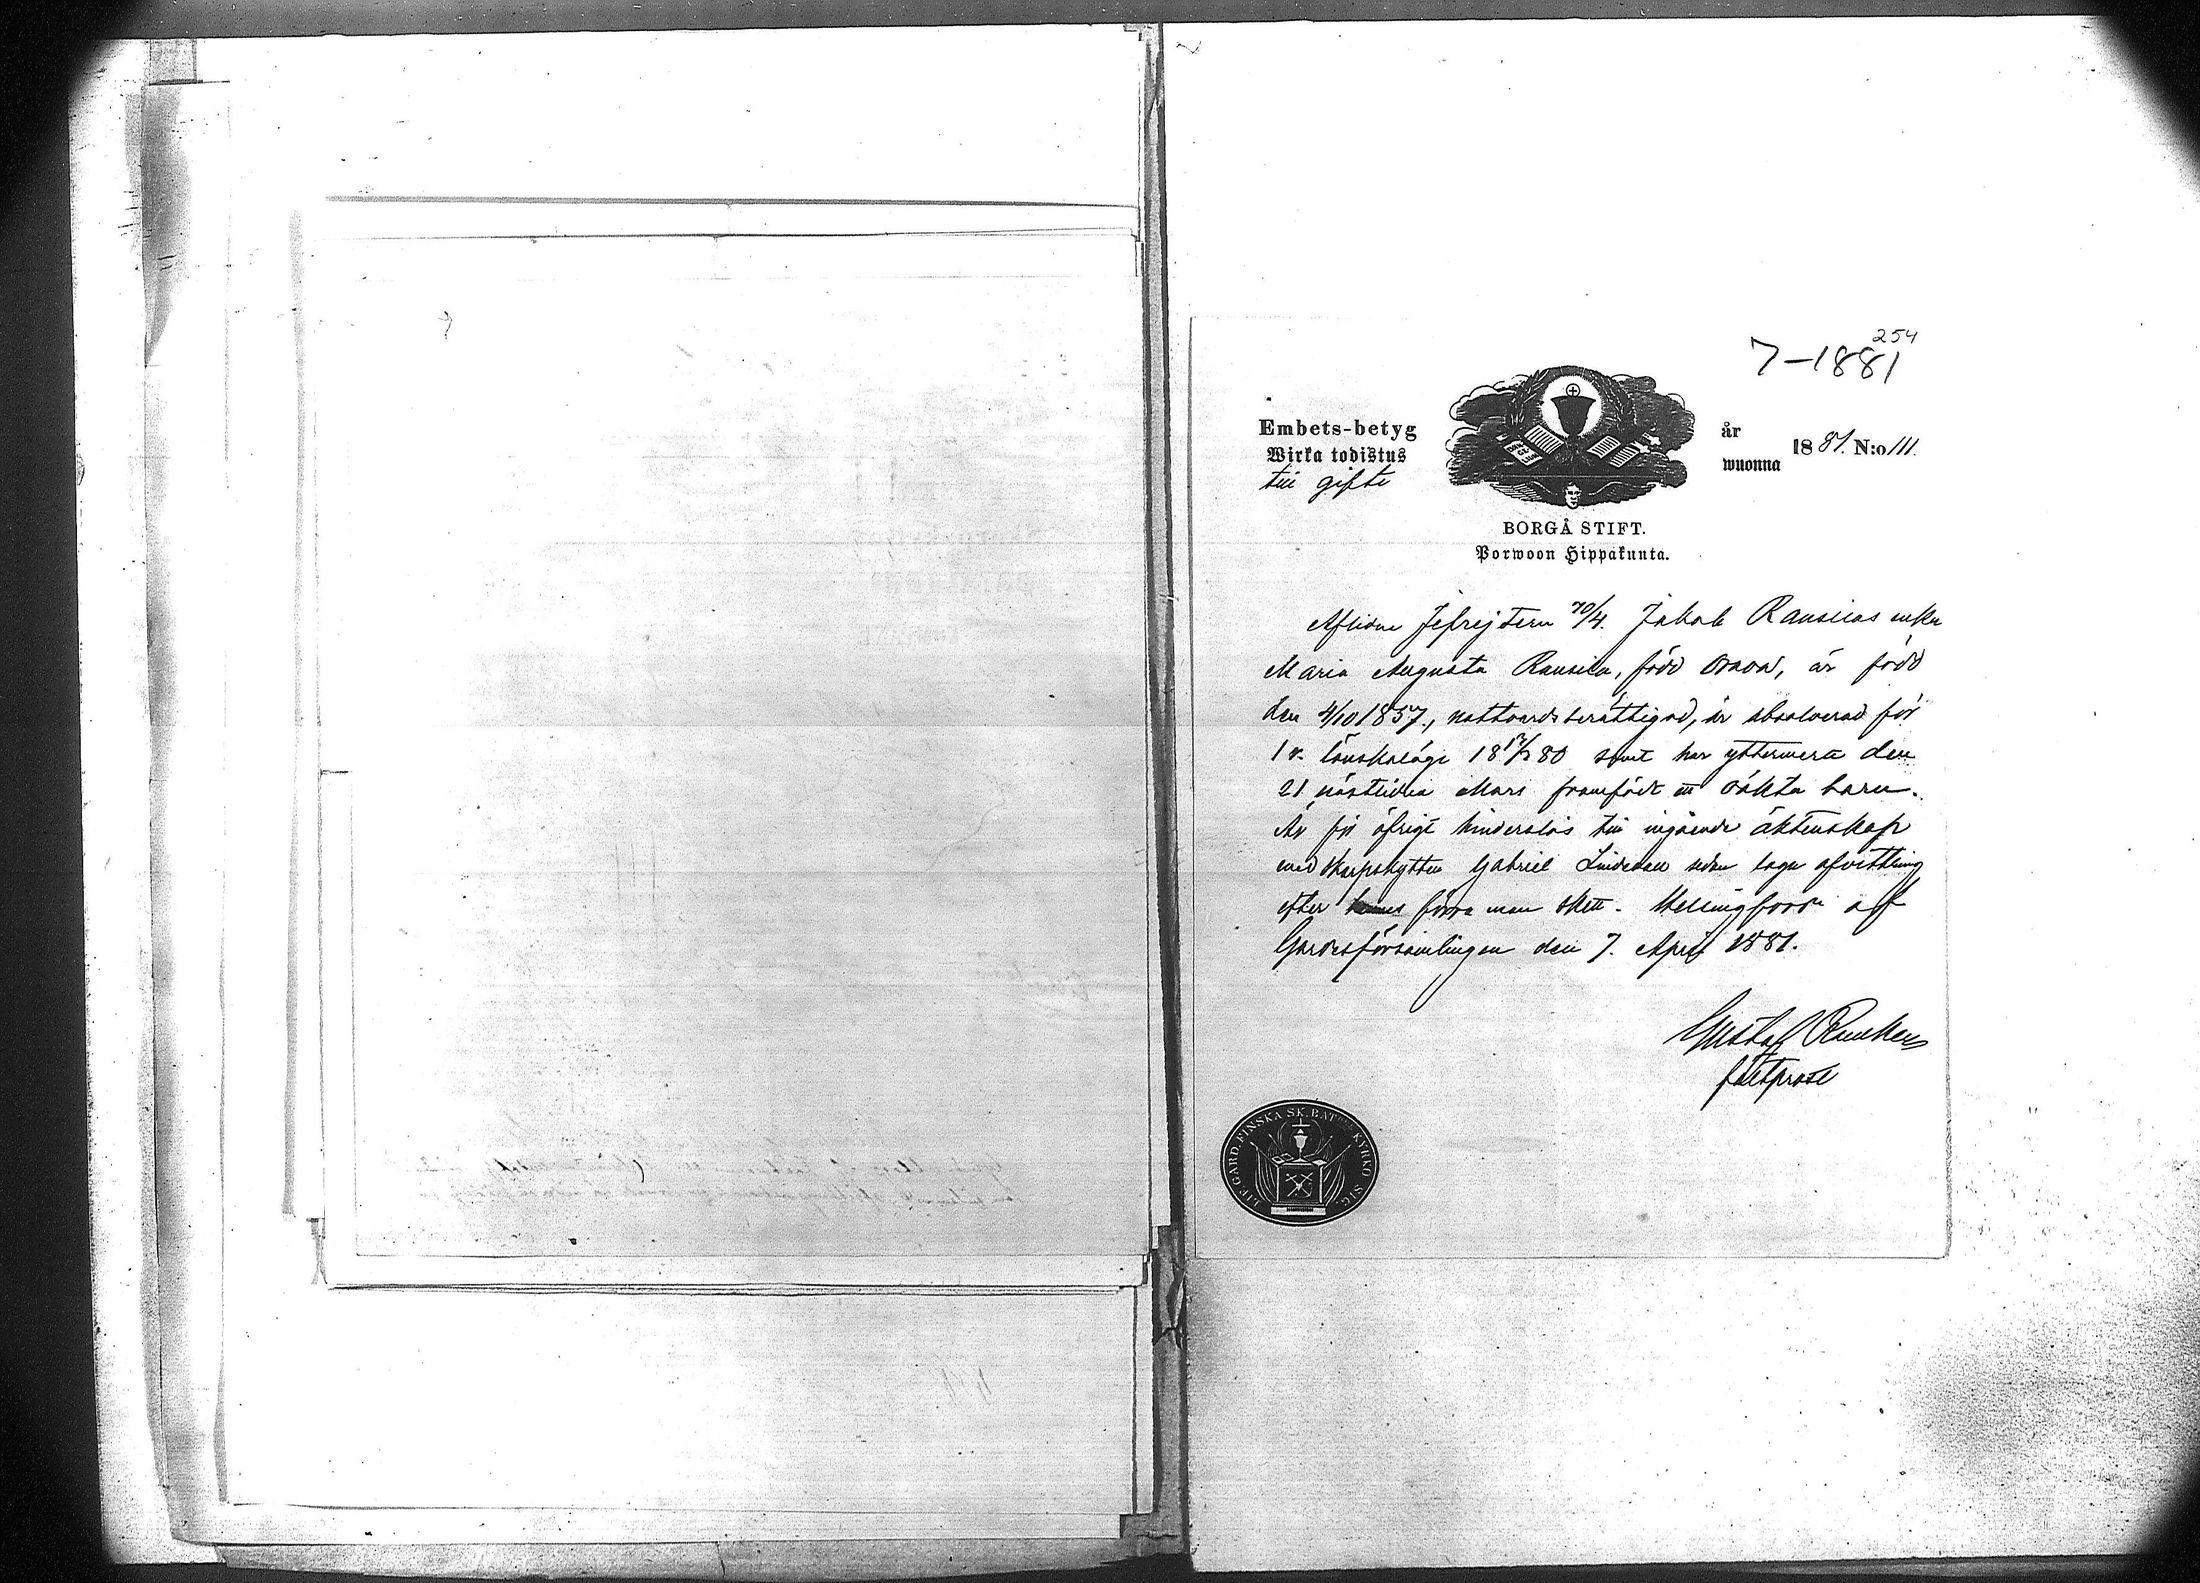 254
7-1881
Embets-betyg
Wirka todistus
till gifte
år
wuonna
1881. N:o 111.
BORGÅ STIFT.
Porwoon Hippakunta.
Aflidne Jefrejtern 70/4. Jakob Rausilas enka
Maria Augusta Rausila, född Orava, är född
den 4/10 1857, nattvardsberättigad, är absolverad för
1 r. lönskaläge 18 80 samt har yttermera den
21 nästlidna Mars framfödt ett oäkta barn.
Är för öfrigt hinderslös till ingående äktenskap
med skarpskytten Gabriel Lindedal sedan laga afvittring
efter hennes förra man skett. Helsingfors af
Gardesförsamlingen den 7. April 1881.
Gustaf
fältprost
LIF GARD. FINSKA SK. BAT KYRKO SIG.